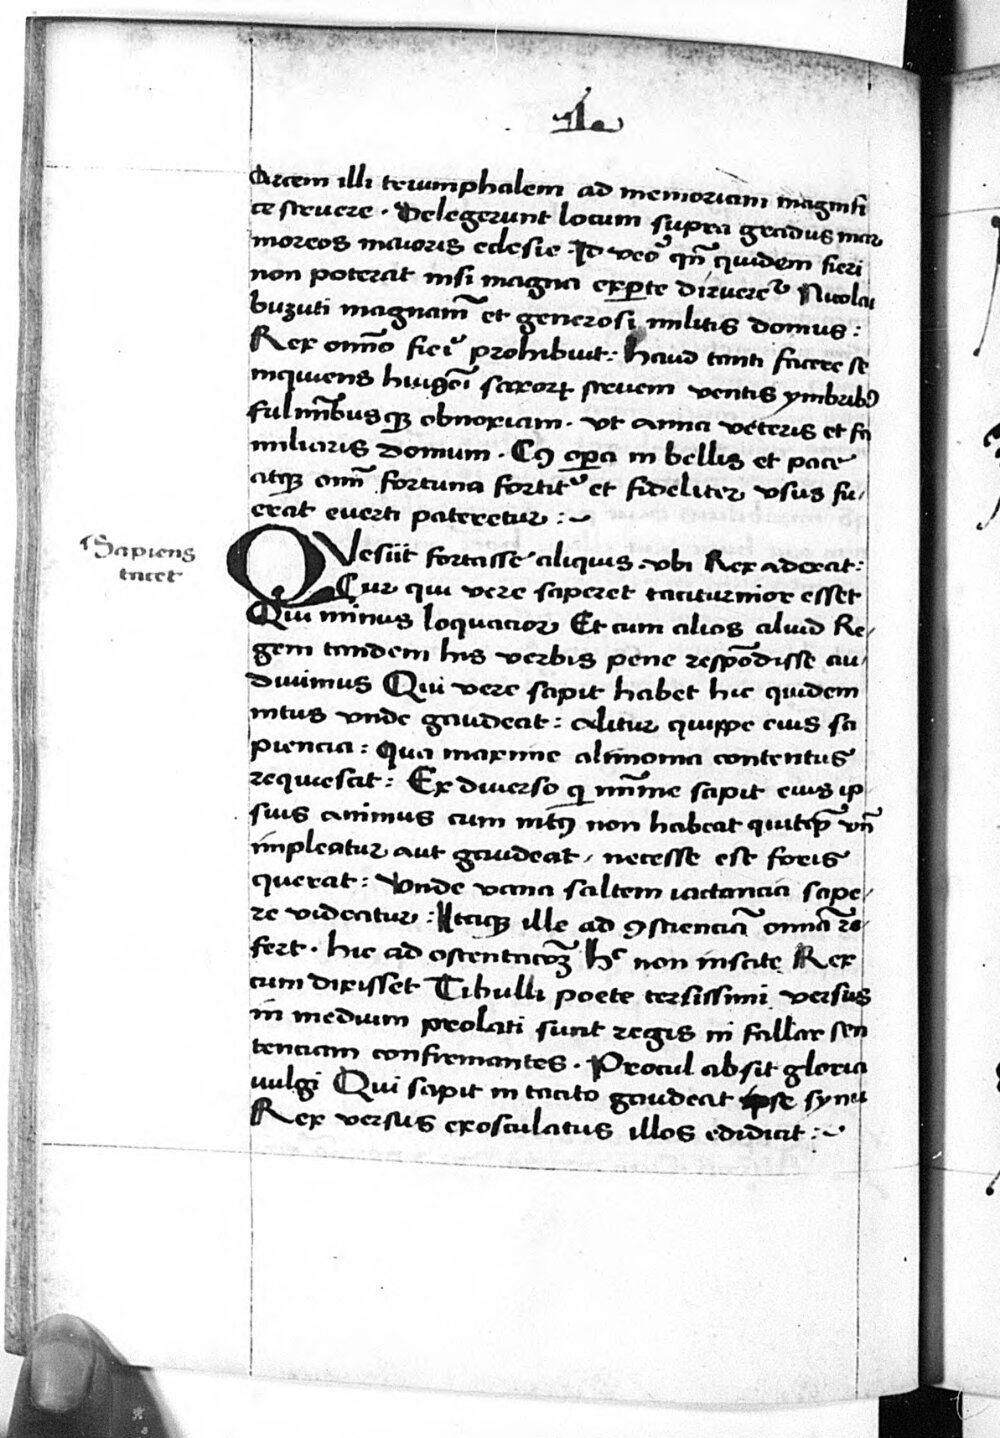 Arcem illi triumphalem ad memoriam magnifi
ce struere. Delegerunt locum supra gradus mar
moreos maioris eclesie. Id veo᷒ qn̄ quidem fieri
non poterat nisi magna ex ꝑte diruere᷒ Nicolai
buzuti magnam̄ et generosi militis domus:
Rex om̄no fieri᷒ prohibuit: haud tanti facere se
inquiens huiꝰcēi saxorꝝ struem ventis ymbribꝰ
fulmı̄busqꝫ obnoxiam. vt anna veteris et fa
miliaris domum. Cꝰ oꝑa in bellis et pace
atqꝫ om̄i fortuna fortit᷒ et fideliter vsus fu/
erat euerti pateretur:~
Sapiens
tacet
QVesiit fortasse aliquis. vbi Rex aderat:
Cur qui vere saperet taciturnior esset
Qui minus loquacior Et cum alios aliud Re/
gem tandem his verbis pene respōdisse au/
diuimus Qui vere sapit habet hic quidem
intus vnde gaudeat: alitur quippe eius sa
piencia: qua maxime altimonia contentus
requiescat: Ex diuerso q mı̄me sapit eius ip
sius animus cum intꝰ non habeat quitꝙ̄ vn̄
impleatur aut gaudeat, necesse est foris
querat: Vnde vana saltem iactancia sape/
re videatur: Itaqꝫ ille ad ꝯscienciā omnā re/
fert. hic ad ostentacōꝫ hᶜ non inscite Rex
cum dixisset Tibulli poete tersissimi versus
in medium prolati sunt regis in fallax sen
tenciam confirmantes. Procul absit gloria
uulgi Qui sapit in tacito gaudeat ipse synu
Rex versus exosculatus illos edidicit:~